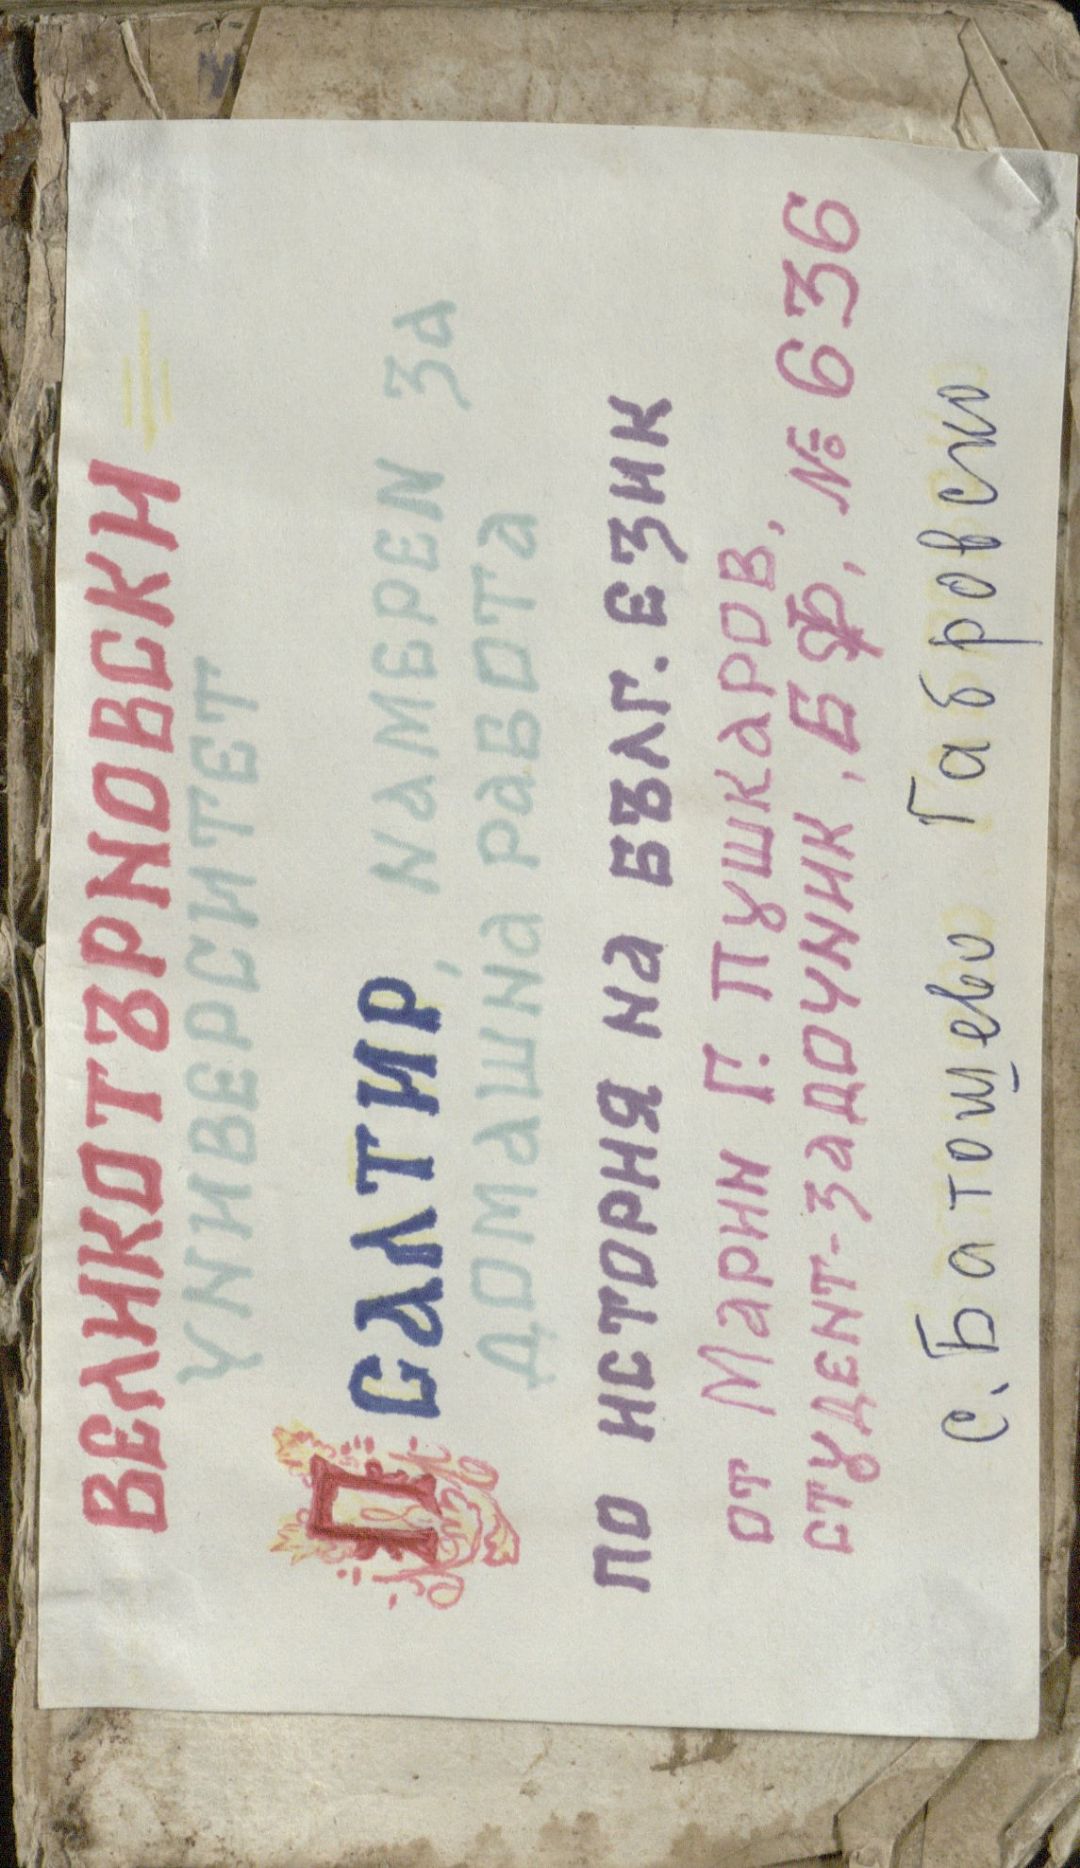 ВЕЛИКОТЪРNОВСКИ
УNИВЕРСИТЕТ
ПСАЛТИР, NАМЕРЕN ЗА
ДОМАШNА РАБОТА
ПО ИСТОРИЯ NА БЪЛГ. ЕЗИК
ОТ МАРИN Г. ПУШКАРОВ,
СТУДЕNТ-ЗАДОЧNИК, БФ, № 636
с. Батошево Габровско